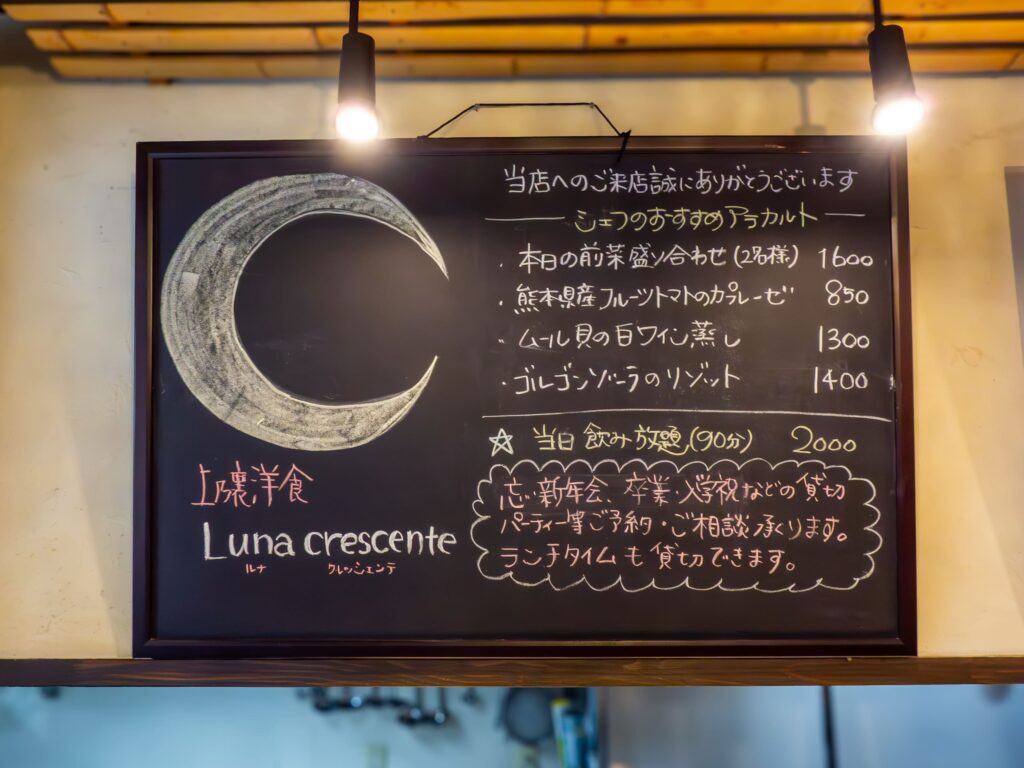 当店へのご来店誠にありがとうございます
シェフのおすすめアラカルト
・本日の前菜盛り合わせ(2名様) 1600
・熊本県産フルーツトマトのカプレーゼ 850
・ムール貝の白ワイン蒸し 1300
・ゴルゴンゾーラのリゾット 1400
☆ 当日飲み放題(90分) 2000
忘・新年会、卒業・入学祝などの貸切
パーティー等ご予約・ご相談承ります。
ランチタイムも貸切できます。
洋食
Luna crescente
ルナ クレッシェンテ